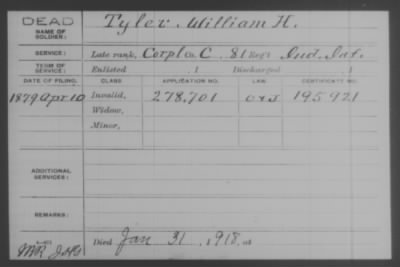 DEAD
NAME OF SOLDIER: Tyler William H.
SERVICE: Late rank, Corpl Co. C. 81 Reg't Ind. Inf.
TERM OF SERVICE: Enlisted , 1 Discharged , 1
DATE OF FILING. CLASS APPLICATION NO. LAW. CERTIFICATE NO.
1879 Apr. 10 Invalid, 278,701 195921
Widow,
Minor,
ADDITIONAL SERVICES:
REMARKS:
Died Jan 31, 1918, at